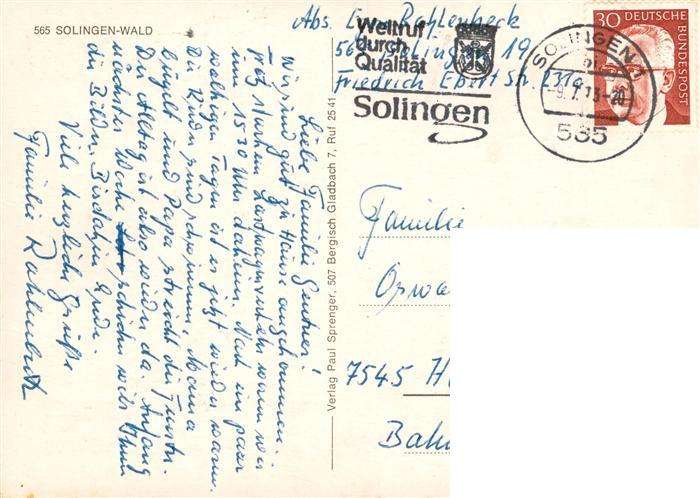 565 SOLINGEN-WALD
Liebe Familie
Wir sind gut zu Hause angekommen.
Trotz starkem waren wir
um 15.30 Uhr daheim. Nach ein paar
Tagen ist es jetzt wieder warm.
Die Kinder sind schwimmen, Mama
bügelt und Papa streicht die Fenster.
Der Alltag ist also wieder da. Anfang
nächster Woche schicken wir Ihnen
die Bilder. Bis dahin
Viele herzliche Grüße
Familie Rahlenbeck
Verlag Paul Sprenger, 507 Bergisch Gladbach 7, Ruf 25 41
Abs. Rahlenbeck
565 Solingen 19
Friedrich Ebert Str. 237a
Weltruf
durch
Qualität
Solingen
SOLINGEN 1
565
30 DEUTSCHE
BUNDESPOST
Familie
7545 H
Bahn